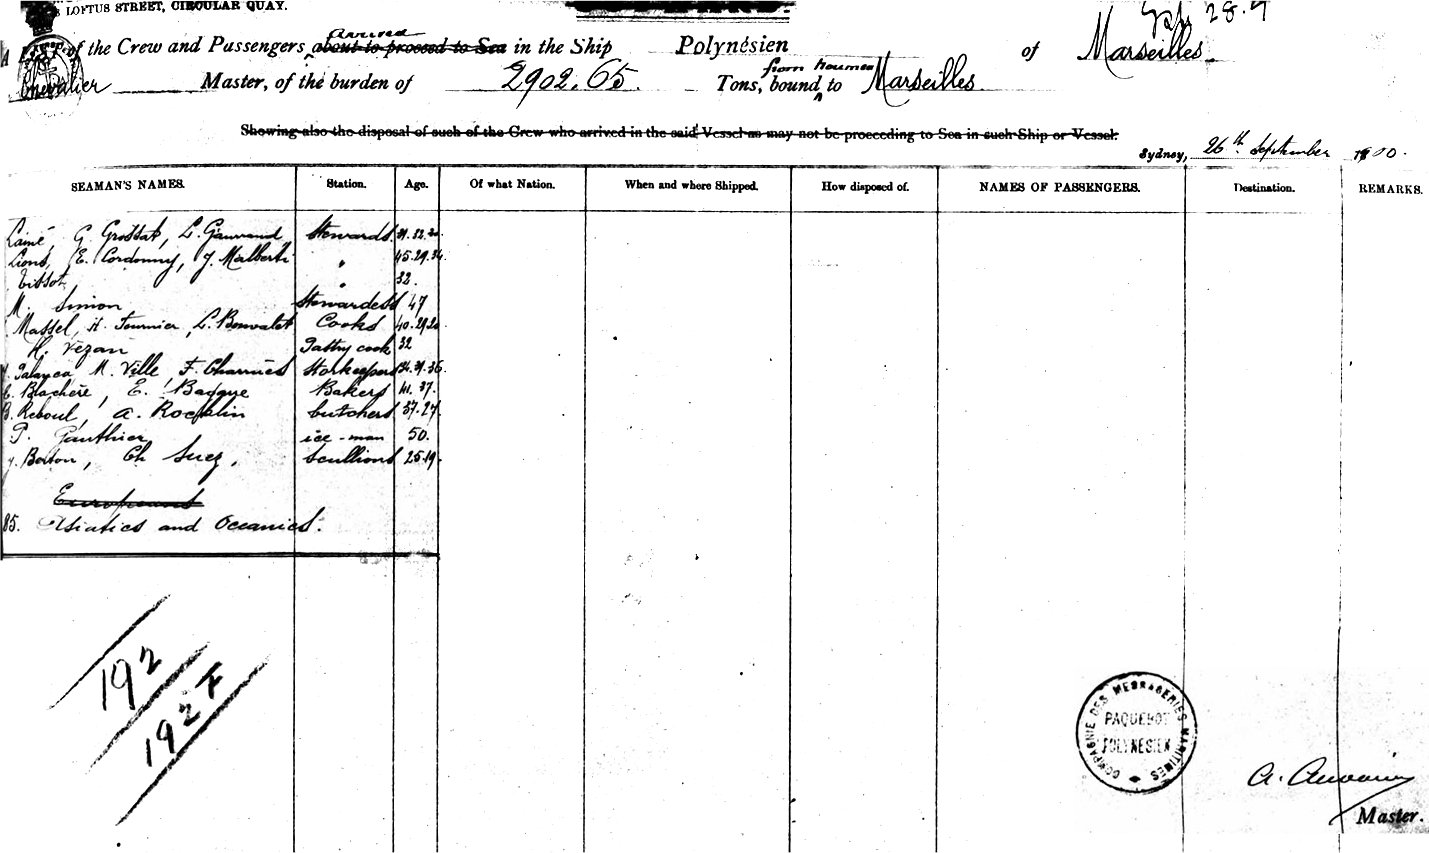 LOFTUS STREET, CIRCULAR QUAY.
of the Crew and Passengers about to proceed to Sea Arrived in the Ship Polynésien of Marseilles
Chevalier Master, of the burden of 2902.65. Tons, bound from Noumea to Marseilles
Showing also the disposal of such of the Crew who arrived in the said Vessel as may not be proceeding to Sea in such Ship or Vessel.
Sydney, 26th September 1900.
SEAMAN'S NAMES. Station. Age. Of what Nation. When and where Shipped. How disposed of. NAMES OF PASSENGERS. Destination. REMARKS.
Lainé, G. Grossat, L. Gauvand Stewards
Lions, E. Cordonny, J. Malberti " 45.29.34
Tissot " 32.
M. Simon Stewardess 47
Massel, H. Fournier, L. Bonvalet Cooks
H. Vézan Pastry cook 32
Palayca M. Ville F. Charriès Storkeepers
Blachère, E. Badque Bakers 41.37.
B. Reboul, A. Rocplin butchers 37.27
P. Gauthier ice-man 50.
J. Berton, Ch Suez, Scullions 25.19.
Europeans
85. Asiatics and Oceanics.
192
192 F
COMPAGNIE DES MESSAGERIES MARITIMES
PAQUEBOT
POLYNESIEN
Master.